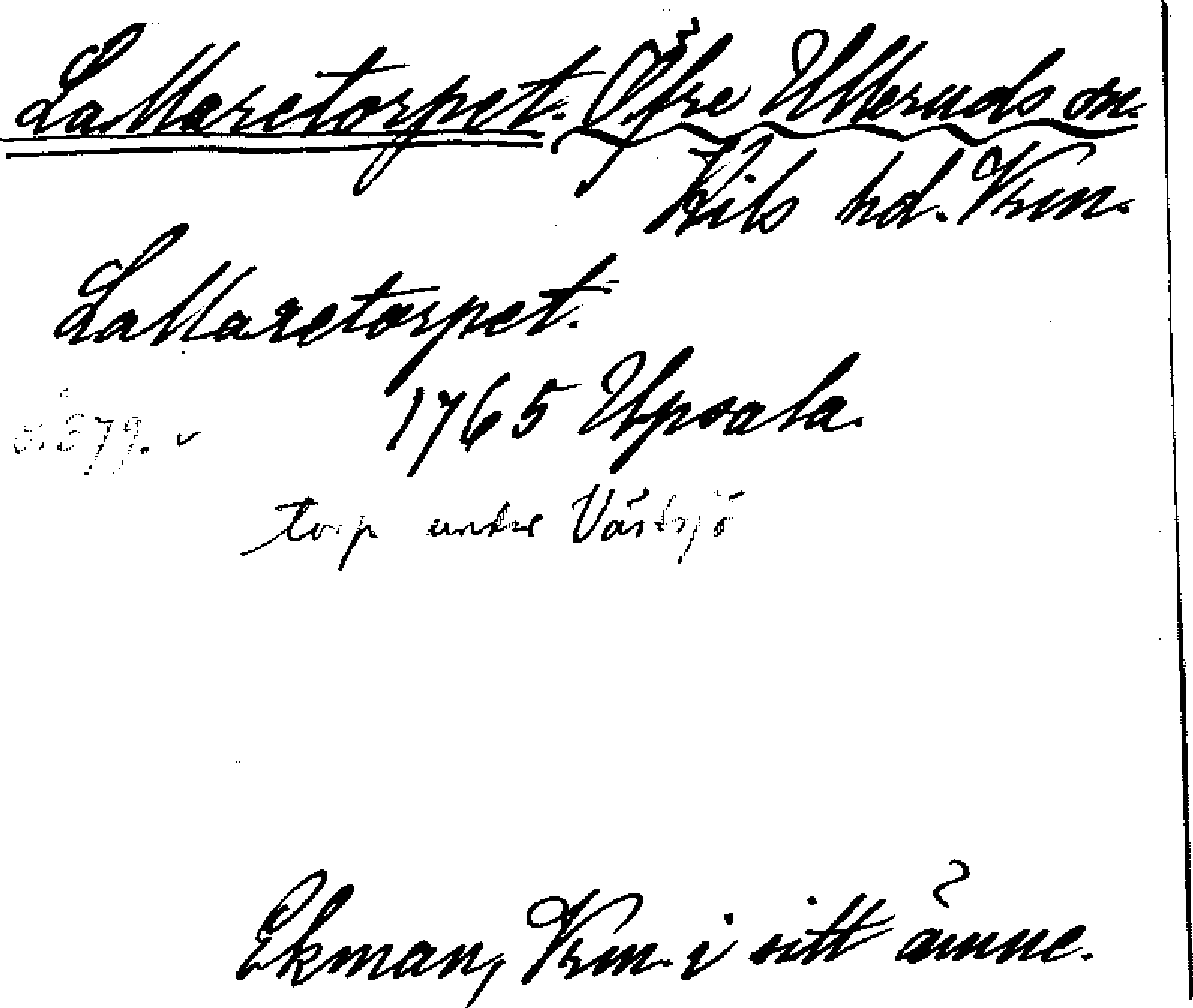 Lallaretorpet. Öfre Ulleruds sn.
Kils hd. Vrm.
Lallaretorpet.
1765 Upsala.
s. 379.
torp under Västsjö
Ekman, Vrm. i sitt ämne.